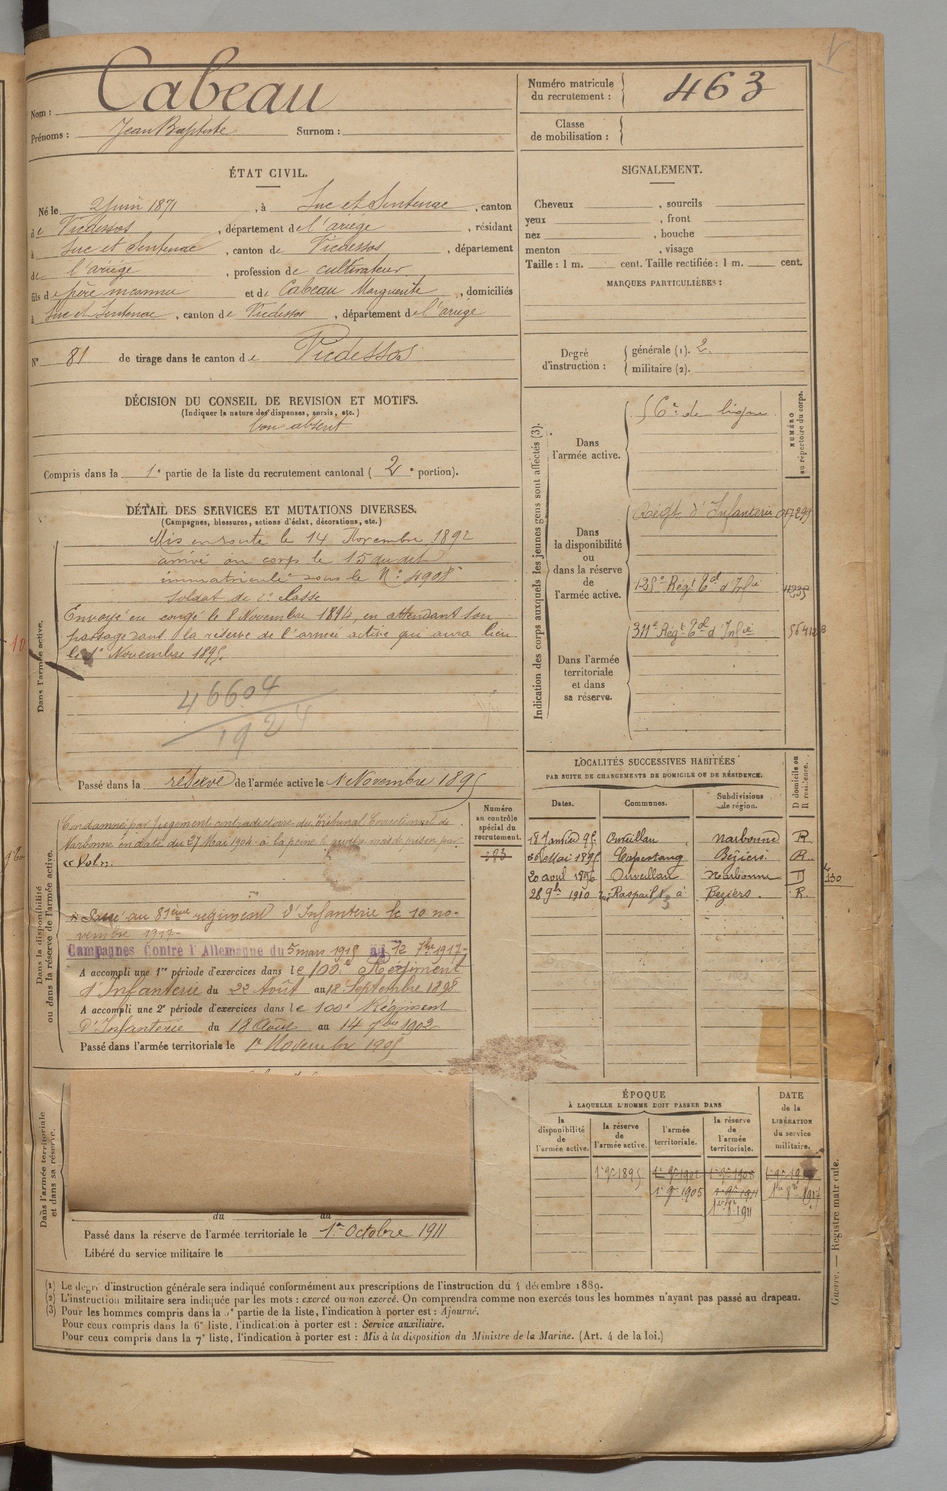 Nom : Cabeau
Prénoms : Jean Baptiste Surnom :
Numéro matricule du recrutement : 463
Classe de mobilisation :
ÉTAT CIVIL.
Né le 2 Juin 1871, à Suc et Sentenac, canton
de Vicdessos, département de l'ariège, résidant
à Suc et Sentenac, canton de Vicdessos, département
de l'ariège, profession de cultivateur
fils de père inconnu et de Cabeau Marguerite, domiciliés
à Suc et Sentenac, canton de Vicdessos, département de l'ariège
N° 81 de tirage dans le canton de Vicdessos
SIGNALEMENT.
Cheveux , sourcils
yeux , front
nez , bouche
menton , visage
Taille : 1 m. cent. Taille rectifiée : 1 m. cent.
MARQUES PARTICULIÈRES :
Degré d'instruction : générale (1). 2.
militaire (2).
DÉCISION DU CONSEIL DE REVISION ET MOTIFS.
(Indiquer la nature des dispenses, sursis, etc.)
bon absent
Compris dans la 1e partie de la liste du recrutement cantonal (2e portion).
DÉTAIL DES SERVICES ET MUTATIONS DIVERSES.
(Campagnes, blessures, actions d'éclat, décorations, etc.)
Dans l'armée active.
Mis en route le 14 Novembre 1892
arrivé au corps le 15 du dit
immatriculé sous le N° 4908
soldat de 2e classe
Envoyé en congé le 8 Novembre 1894, en attendant son
passage dans la réserve de l'armée active qui aura lieu
le 1er Novembre 1895.
46604
1924
Passé dans la réserve de l'armée active le 1 Novembre 1895
Indication des corps auxquels les jeunes gens sont affectés (3).
NUMÉRO au répertoire du corps.
Dans l'armée active.
de ligne
Dans la disponibilité ou dans la réserve de l'armée active.
Régt d'Infanterie
135e Régt d'Infie
Dans l'armée territoriale et dans sa réserve.
Régt d'Infie
LOCALITÉS SUCCESSIVES HABITÉES
PAR SUITE DE CHANGEMENTS DE DOMICILE OU DE RÉSIDENCE.
Dates. Communes. Subdivisions de région. D domicile ou R résidence.
Ouveillan Narbonne R.
Mai 1895 Capestang Béziers. R.
20 avril 1896 Ouveillan Narbonne D
28 9bre 1910 Beziers. R.
Dans la disponibilité ou dans la réserve de l'armée active.
Numéro au contrôle spécial du recrutement.
Condamné par jugement contradictoire du Tribunal Correctionnel de
Narbonne en date du 27 Mai 1904 à la peine de mois de prison par
" Vol ".
au 81ème régiment d'Infanterie le 10 no-
vembre
Campagnes Contre l'Allemagne du 5 mars au 12 1917
A accompli une 1re période d'exercices dans le 100e Régiment
d'Infanterie du 22 Août au 18 Septembre 1898
A accompli une 2e période d'exercices dans le 100e Régiment
D'Infanterie du 18 Août au 14 7bre 1902
Passé dans l'armée territoriale le 1er Novembre 1905
Dans l'armée territoriale et dans sa réserve.
du au
Passé dans la réserve de l'armée territoriale le 1er Octobre 1911
Libéré du service militaire le
ÉPOQUE
À LAQUELLE L'HOMME DOIT PASSER DANS
la disponibilité de l'armée active. la réserve de l'armée active. l'armée territoriale. la réserve de l'armée territoriale.
DATE de la LIBÉRATION du service militaire.
1er 9bre 1895
1er 9bre 1905
(1) Le degré d'instruction générale sera indiqué conformément aux prescriptions de l'instruction du 4 décembre 1889.
(2) L'instruction militaire sera indiquée par les mots : exercé ou non exercé. On comprendra comme non exercés tous les hommes n'ayant pas passé au drapeau.
(3) Pour les hommes compris dans la partie de la liste, l'indication à porter est : Ajourné.
Pour ceux compris dans la 6e liste, l'indication à porter est : Service auxiliaire.
Pour ceux compris dans la 7e liste, l'indication à porter est : Mis à la disposition du Ministre de la Marine. (Art. 4 de la loi.)
Guerre. — Registre matricule.